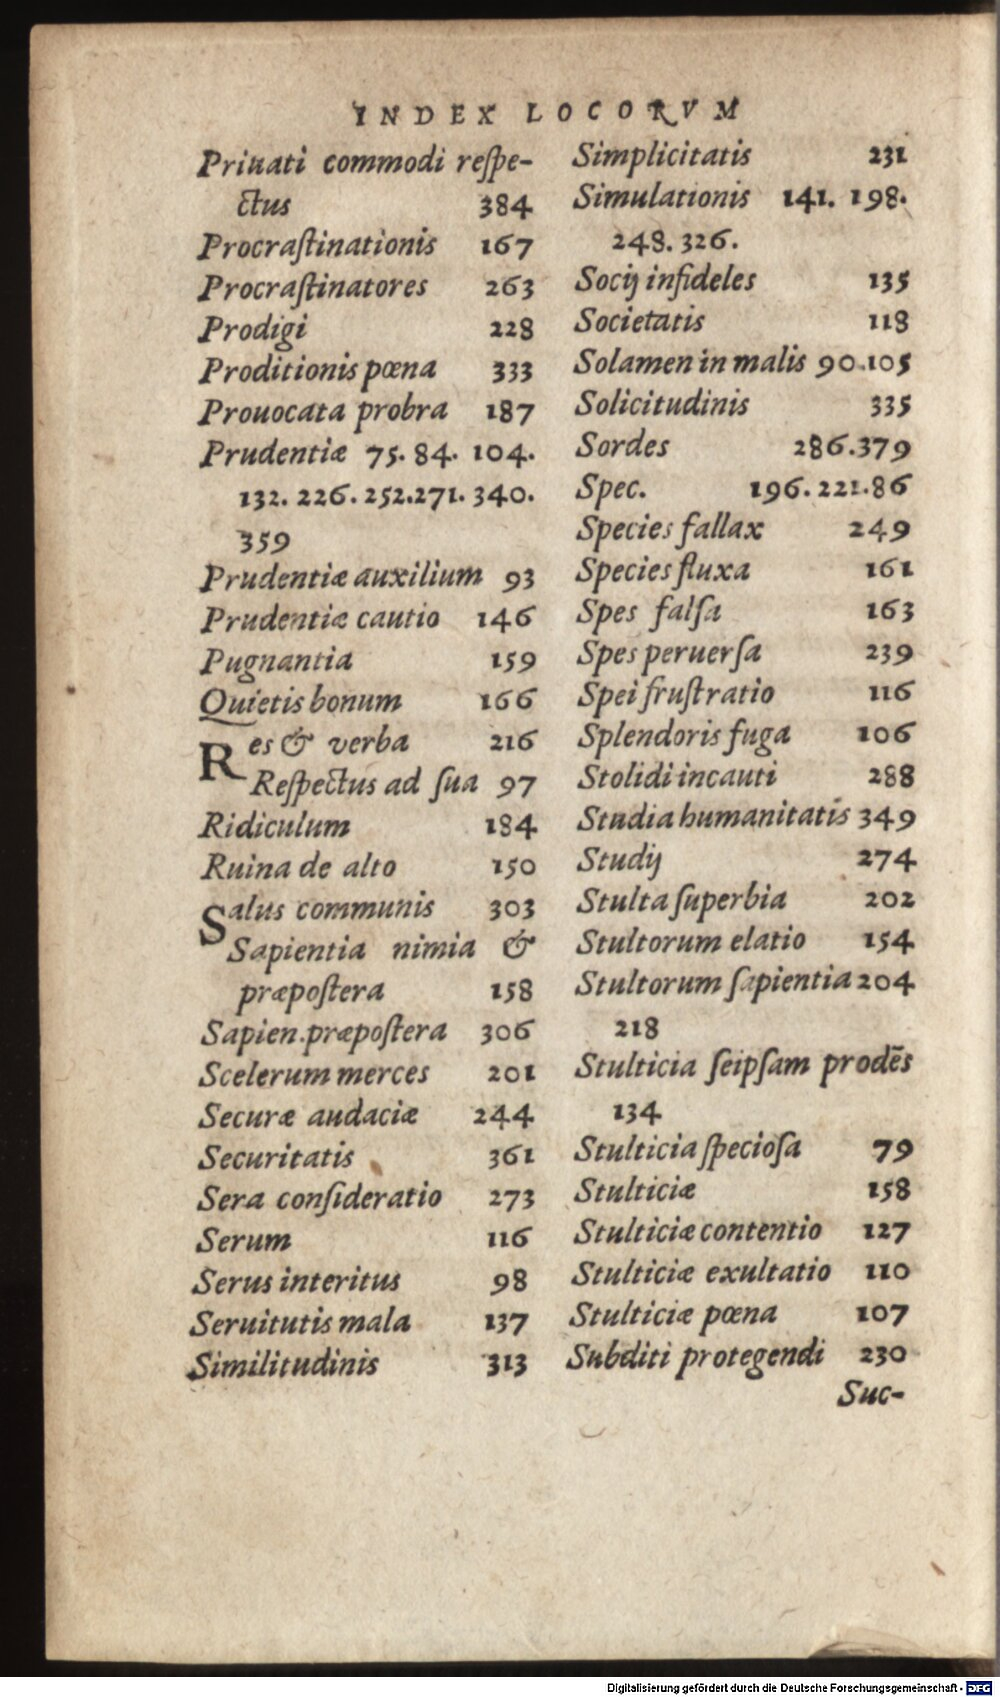 INDEX LOCORVM
Priuati commodi reſpe-
ctus 384
Procraſtinationis 167
Procraſtinatores 263
Prodigi 228
Proditionis pœna 333
Prouocata probra 187
Prudentiæ 75. 84. 104.
132. 226. 252. 271. 340.
359
Prudentiæ auxilium 93
Prudentiæ cautio 146
Pugnantia 159
Quietis bonum 166
Res & verba 216
Reſpectus ad ſua 97
Ridiculum 184
Ruina de alto 150
Salus communis 303
Sapientia nimia &
præpoſtera 158
Sapien. præpoſtera 306
Scelerum merces 201
Securæ audaciæ 244
Securitatis 361
Sera conſideratio 273
Serum 116
Serus interitus 98
Seruitutis mala 137
Similitudinis 313
Simplicitatis 231
Simulationis 141. 198.
248. 326.
Socij infideles 135
Societatis 118
Solamen in malis 90.105
Solicitudinis 335
Sordes 286.379
Spec. 196. 221.86
Species fallax 249
Species fluxa 161
Spes falſa 163
Spes peruerſa 239
Spei fruſtratio 116
Splendoris fuga 106
Stolidi incauti 288
Studia humanitatis 349
Studij 274
Stulta ſuperbia 202
Stultorum elatio 154
Stultorum ſapientia 204
218
Stulticia ſeipſam prodẽs
134
Stulticia ſpecioſa 79
Stulticiæ 158
Stulticiæ contentio 127
Stulticiæ exultatio 110
Stulticiæ pœna 107
Subditi protegendi 230
Suc-
Digitalisierung gefördert durch die Deutsche Forschungsgemeinschaft - DFG